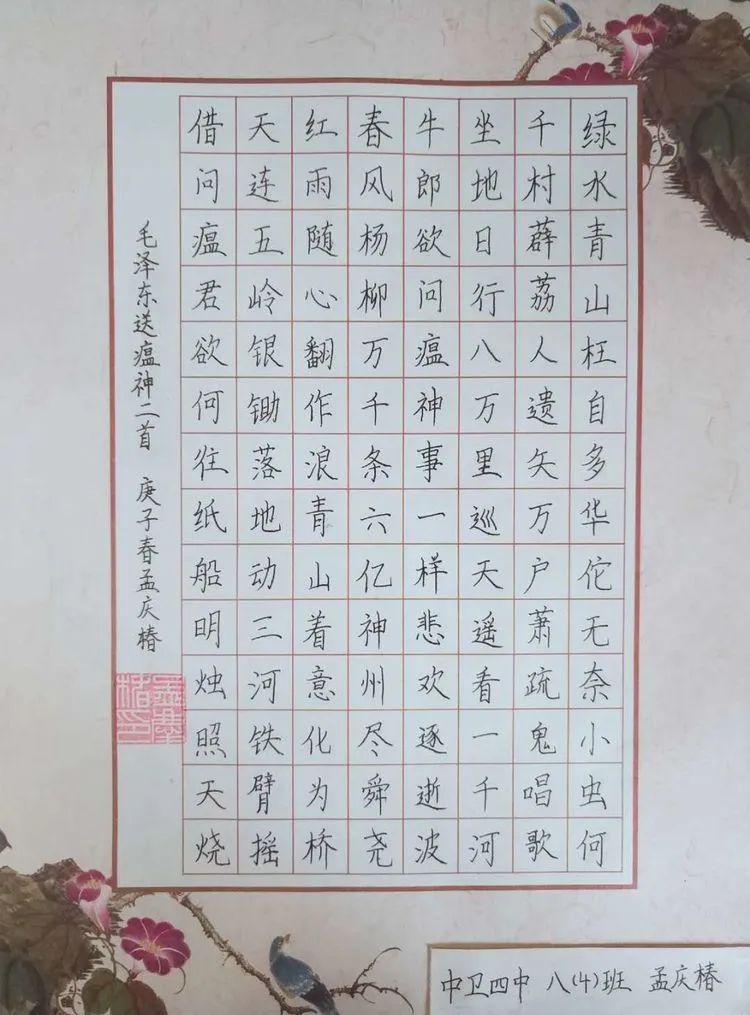 绿水青山枉自多华佗无奈小虫何
千村薜荔人遗矢万户萧疏鬼唱歌
坐地日行八万里巡天遥看一千河
牛郎欲问瘟神事一样悲欢逐逝波
春风杨柳万千条六亿神州尽舜尧
红雨随心翻作浪青山着意化为桥
天连五岭银锄落地动三河铁臂摇
借问瘟君欲何往纸船明烛照天烧
毛泽东送瘟神二首 庚子春孟庆椿
中卫四中 八(4)班 孟庆椿